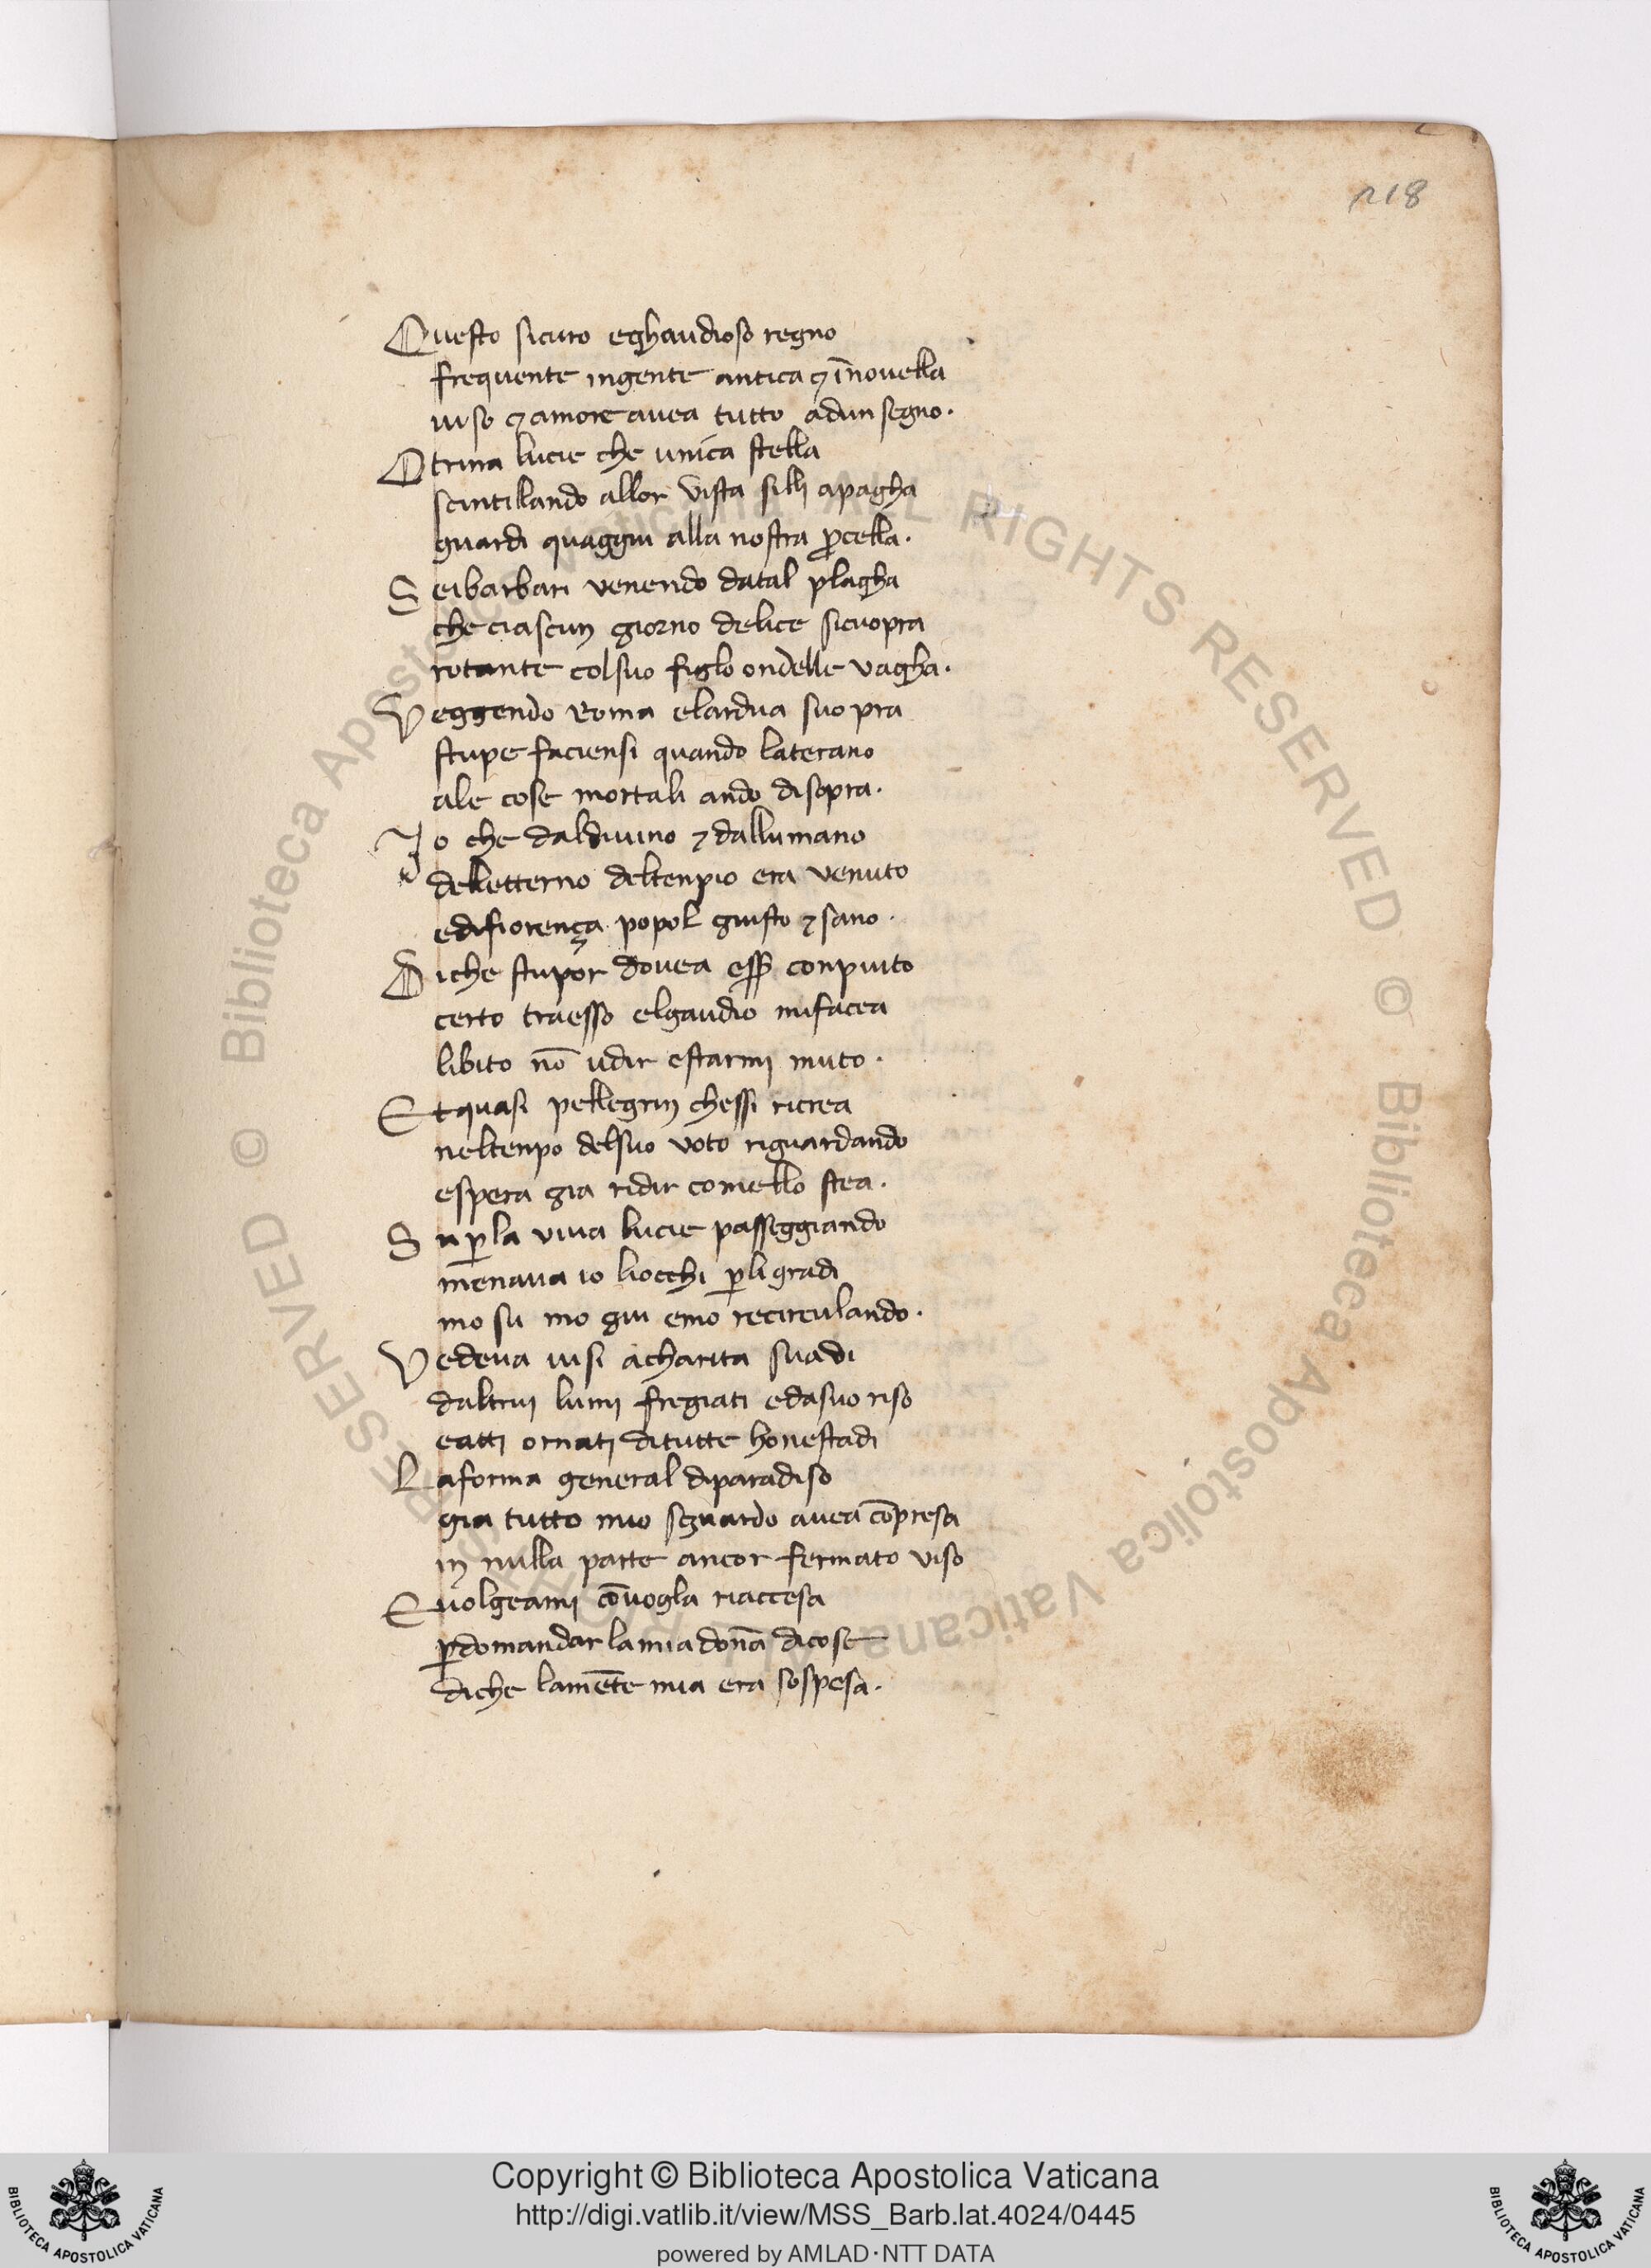 218
Questo sicuro eghaudioso regno
frequente ingente antica ⁊ īnouella
uiso ⁊ amore auea tutto adun segno.
O trina lucie che unica stella
scintillando allor vista silli apagha
guardi quaggiu alla nostra ꝓcella.
S eibarbari venendo datal plagha
che ciascun giorno delice sicuopra
rotante colsuo figlo ondelle vagha.
V eggendo Roma elardua suo pra
stupe faciensi quando laterano
ale cose mortali ando disopra.
Io che daldiuino ⁊ dallumano
delletterno deltenpio era venuto
edifiorença popol giusto ⁊ sano.
Diche stupor douea esẜ conpiuto
certo traesso elgaudio mifacea
libito nō udir estarmi muto.
Et quasi pellegrin chessi ricrea
neltenpo delsuo voto riguardando
espera gia ridir comello stea.
S u ꝑ la viua lucie passeggiando
menaua io liocchi ꝑ li gradi
mo su mo giu emo recirculando.
V edeua uisi acharita suadi
daltrui lumi fregiati edasuo riso
eatti ornati ditutte honestadi
L aforma general diparadiso
gia tutto mio sguardo auea cōpresa
in nulla parte ancor fermato viso
E uolgeami cōuogla riaccesa
ꝑ domandar lamia donā dicose
diche lamēte mia era sospesa.
Copyright © Biblioteca Apostolica Vaticana
http://digi.vatlib.it/view/MSS_Barb.lat.4024/0445
powered by AMLAD·NTT DATA
BIBLIOTECA APOSTOLICA VATICANA
BIBLIOTECA APOSTOLICA VATICANA
© Biblioteca Apostolica Vaticana ALL RIGHTS RESERVED © Biblioteca Apostolica Vaticana ALL RIGHTS RESERVED